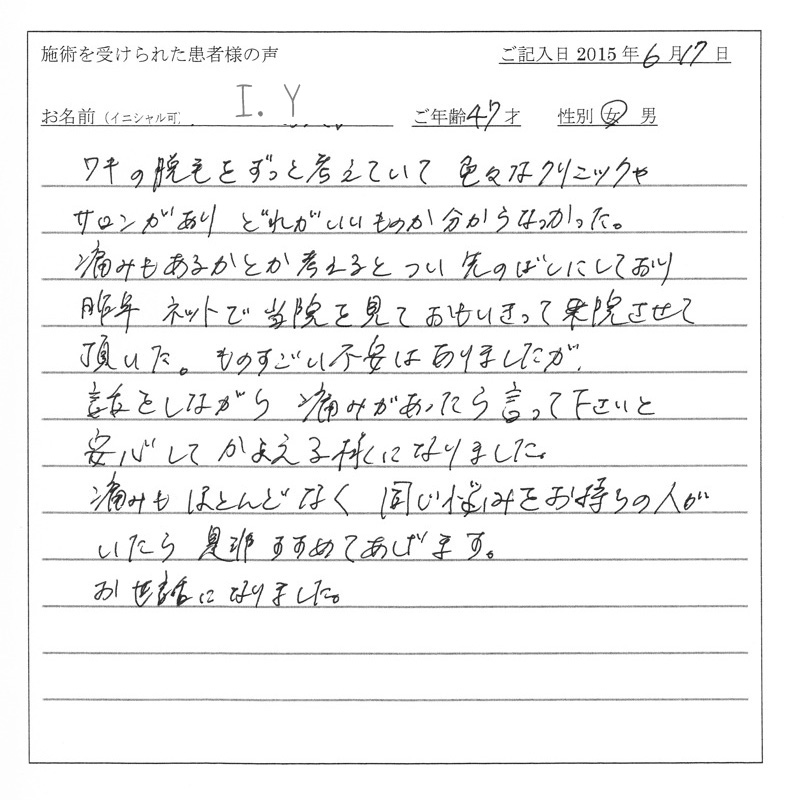 施術を受けられた患者様の声 ご記入日 2015 年 6 月 17 日
お名前(イニシャル可) I. Y ご年齢 47 才 性別 女 男
ワキの脱毛をずっと考えていて 色々なクリニックや
サロンがあり どれがいいものか分からなっかった。
痛みもあるかとか考えるとつい先のばしにしており
昨年 ネットで当院を見ておもいきって来院させて
頂いた。ものすごい不安はありましたが、
話をしながら 痛みがあったら言って下さいと
安心してかよえる様になりました。
痛みもほとんどなく 同じ悩みをお持ちの人が
いたら 是非すすめてあげます。
お世話になりました。